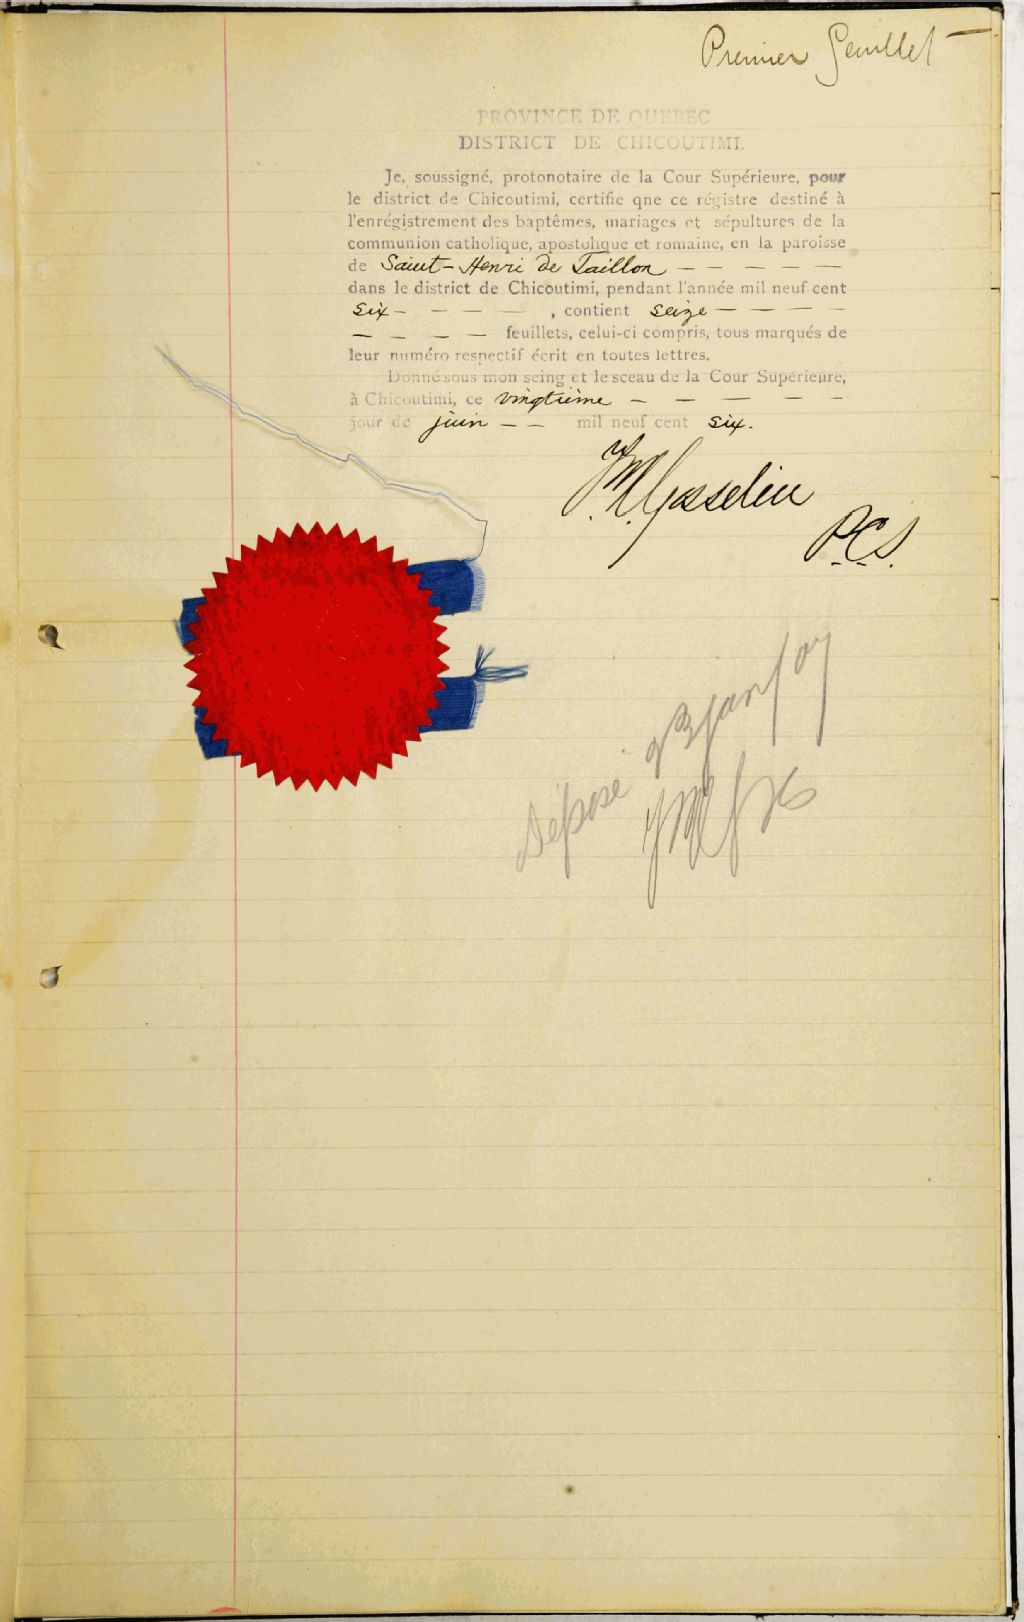 Premier feuillet
PROVINCE DE QUEBEC
DISTRICT DE CHICOUTIMI.
Je, soussigné, protonotaire de la Cour Supérieure, pour
le district de Chicoutimi, certifie qne ce régistre destiné à
l'enrégistrement des baptêmes, mariages et sépultures de la
communion catholique, apostolique et romaine, en la paroisse
de Saint-Henri de Taillon — — — — —
dans le district de Chicoutimi, pendant l'année mil neuf cent
six — — — — — , contient seize — — — —
— — — — — feuillets, celui-ci compris, tous marqués de
leur numéro respectif écrit en toutes lettres.
Donné sous mon seing et le sceau de la Cour Supérieure,
à Chicoutimi, ce vingtième — — — — —
jour de juin — — mil neuf cent six.
Gosselin
P.C.S.
Déposé 23 janv 07